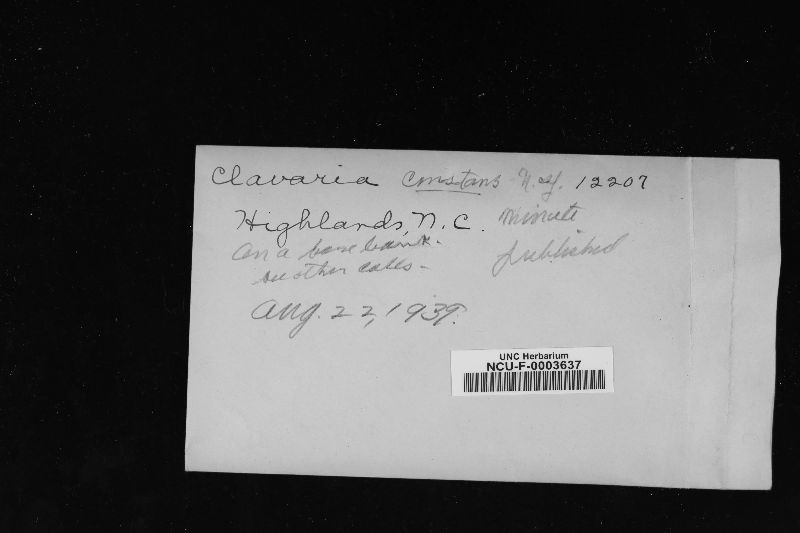 Clavaria constans n.sp. 12207
Highlands, N.C. minute
On a bare bank.
see other colls.
published
Aug. 22, 1939.
UNC Herbarium
NCU-F-0003637